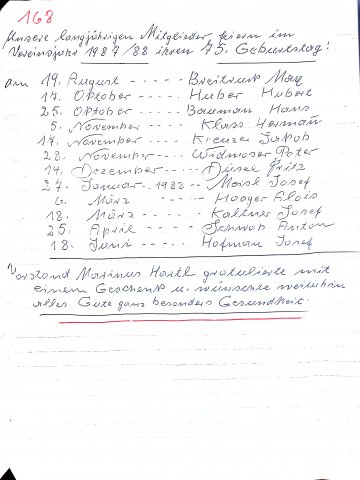 168
Unsere langjährigen Mitglieder, feiern im
Vereinsjahr 1987/88 ihren 75. Geburtstag!
am 19. August - - - - - Breitrück Max
17. Oktober - - - - - Huber Hubert
25. Oktober - - - - - Bauman Hans
5. November - - - - - Klass Herman
17. November - - - - - Kreuzer Jakob
23. November - - - - - Widmoser Peter
14. Dezember - - - - - Düsel Fritz
27. Januar - - 1988 - - Maisl Josef
6. März - - - - - Haager Alois
18. März - - - - - Kaltner Josef
25. April - - - - - Schwab Anton
18. Juni - - - - - Hofman Josef
Vorstand Marinus Hartl gratulierte mit
einem Geschenk u. wünschte weiterhin
alles Gute ganz besonders Gesundheit.